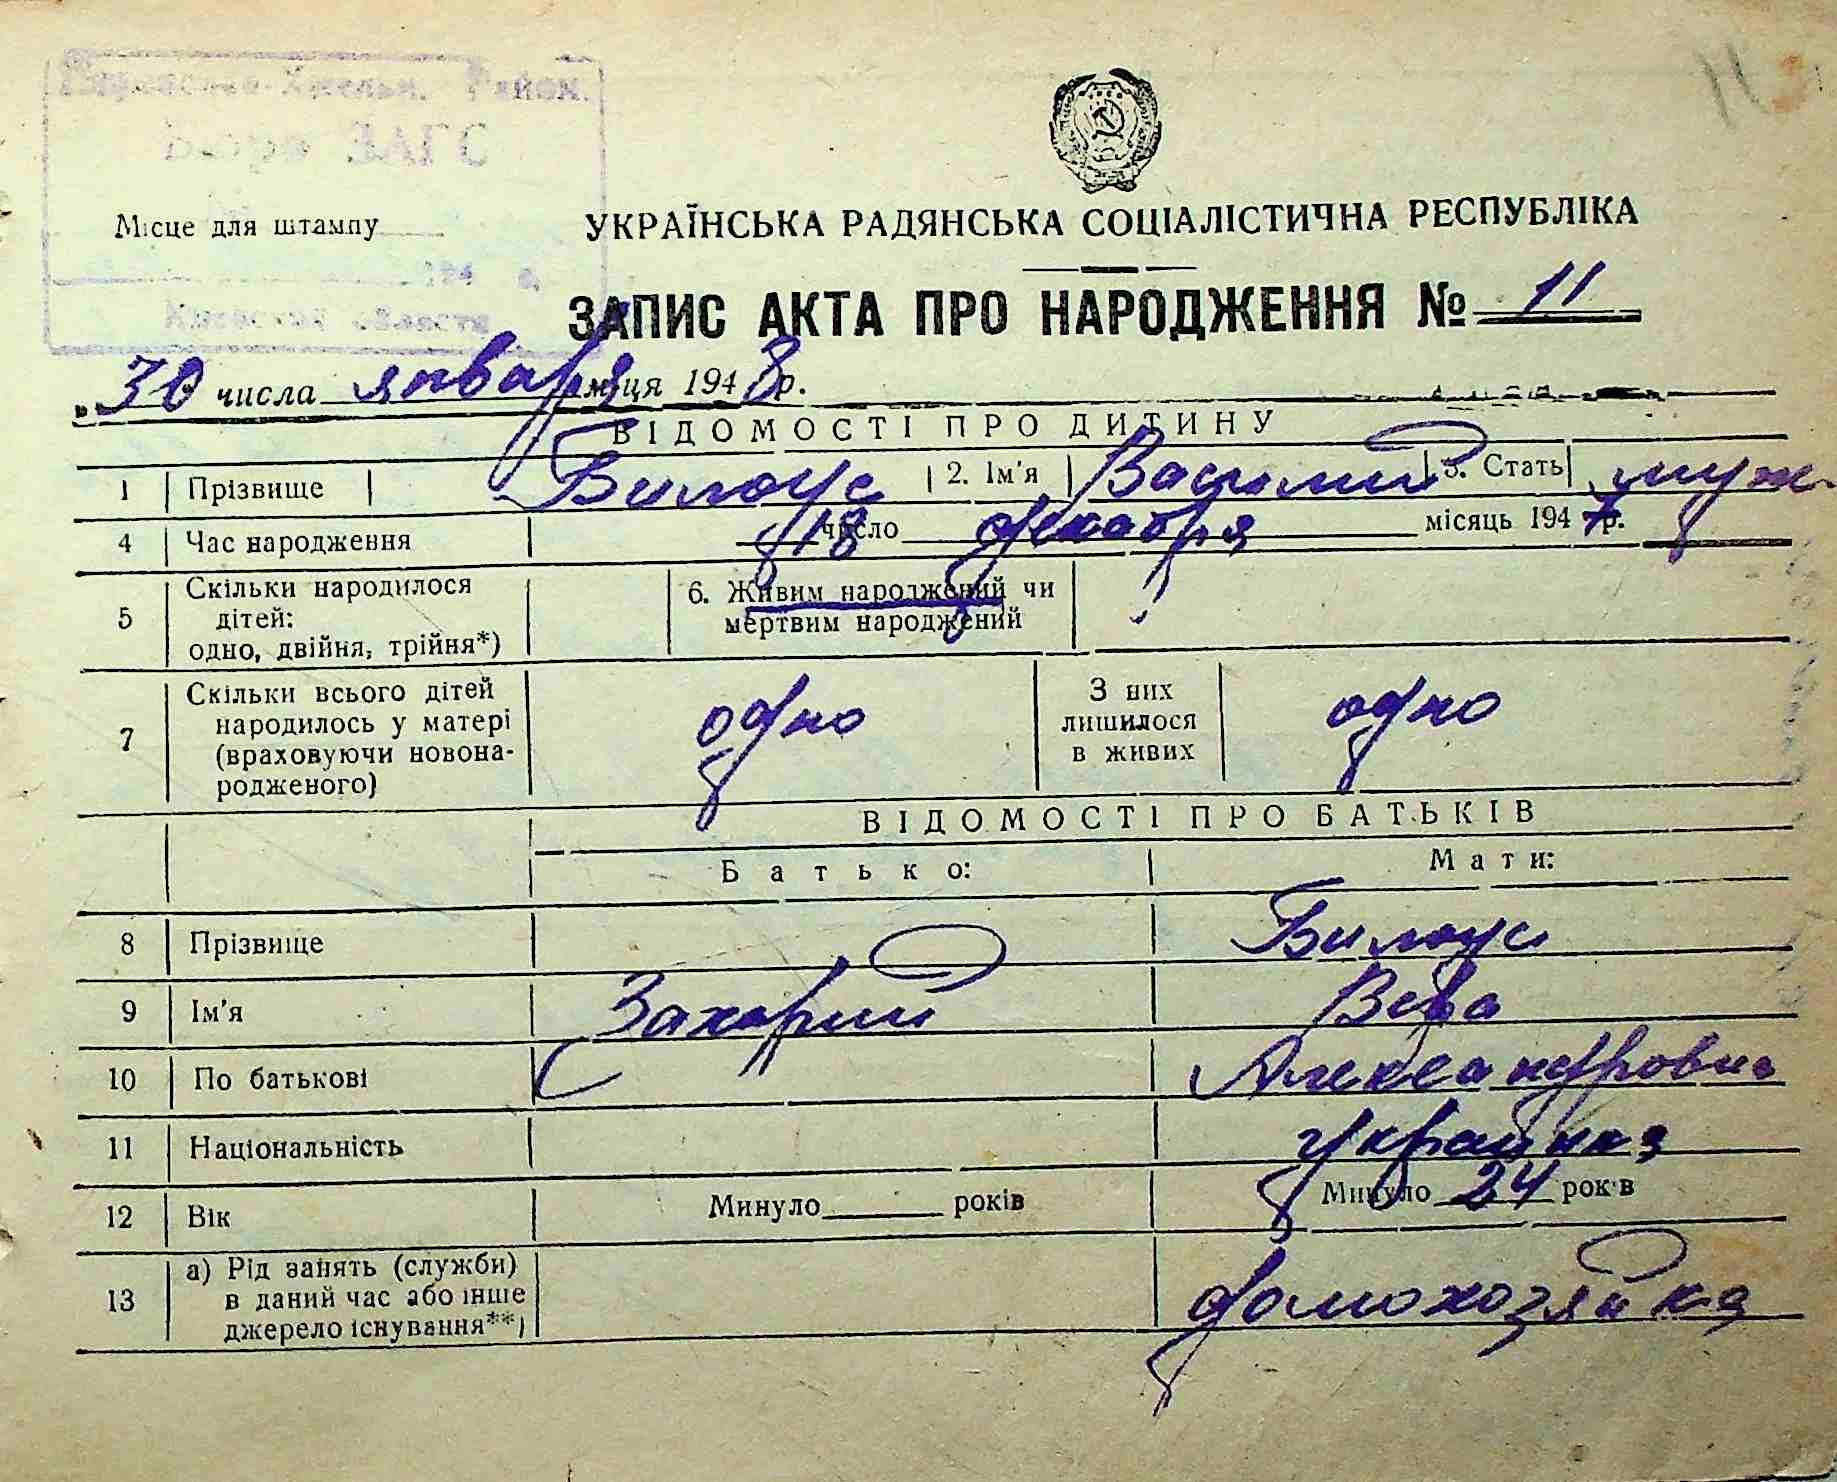 Район.
Бюро ЗАГС
Місце для штампу
194 г.
Киевской области
УКРАЇНСЬКА РАДЯНСЬКА СОЦІАЛІСТИЧНА РЕСПУБЛІКА
ЗАПИС АКТА ПРО НАРОДЖЕННЯ № 11
„ 30 числа января м-ця 1948 р.
ВІДОМОСТІ ПРО ДИТИНУ
1 Прізвище Билоус 2. Ім'я Василий 3. Стать муж.
4 Час народження 18 число декабря місяць 1947 р.
5 Скільки народилося дітей: одно, двійня, трійня*) 6. Живим народжений чи мертвим народжений
7 Скільки всього дітей народилось у матері (враховуючи новона-родженого) одно З них лишилося в живих одно
ВІДОМОСТІ ПРО БАТЬКІВ
Батько: Мати:
8 Прізвище Билоус
9 Ім'я Захарий Вера
10 По батькові Александровна
11 Національність украинка
12 Вік Минуло років Минуло 24 років
13 а) Рід занять (служби) в даний час або інше джерело існування**) домохозяйка